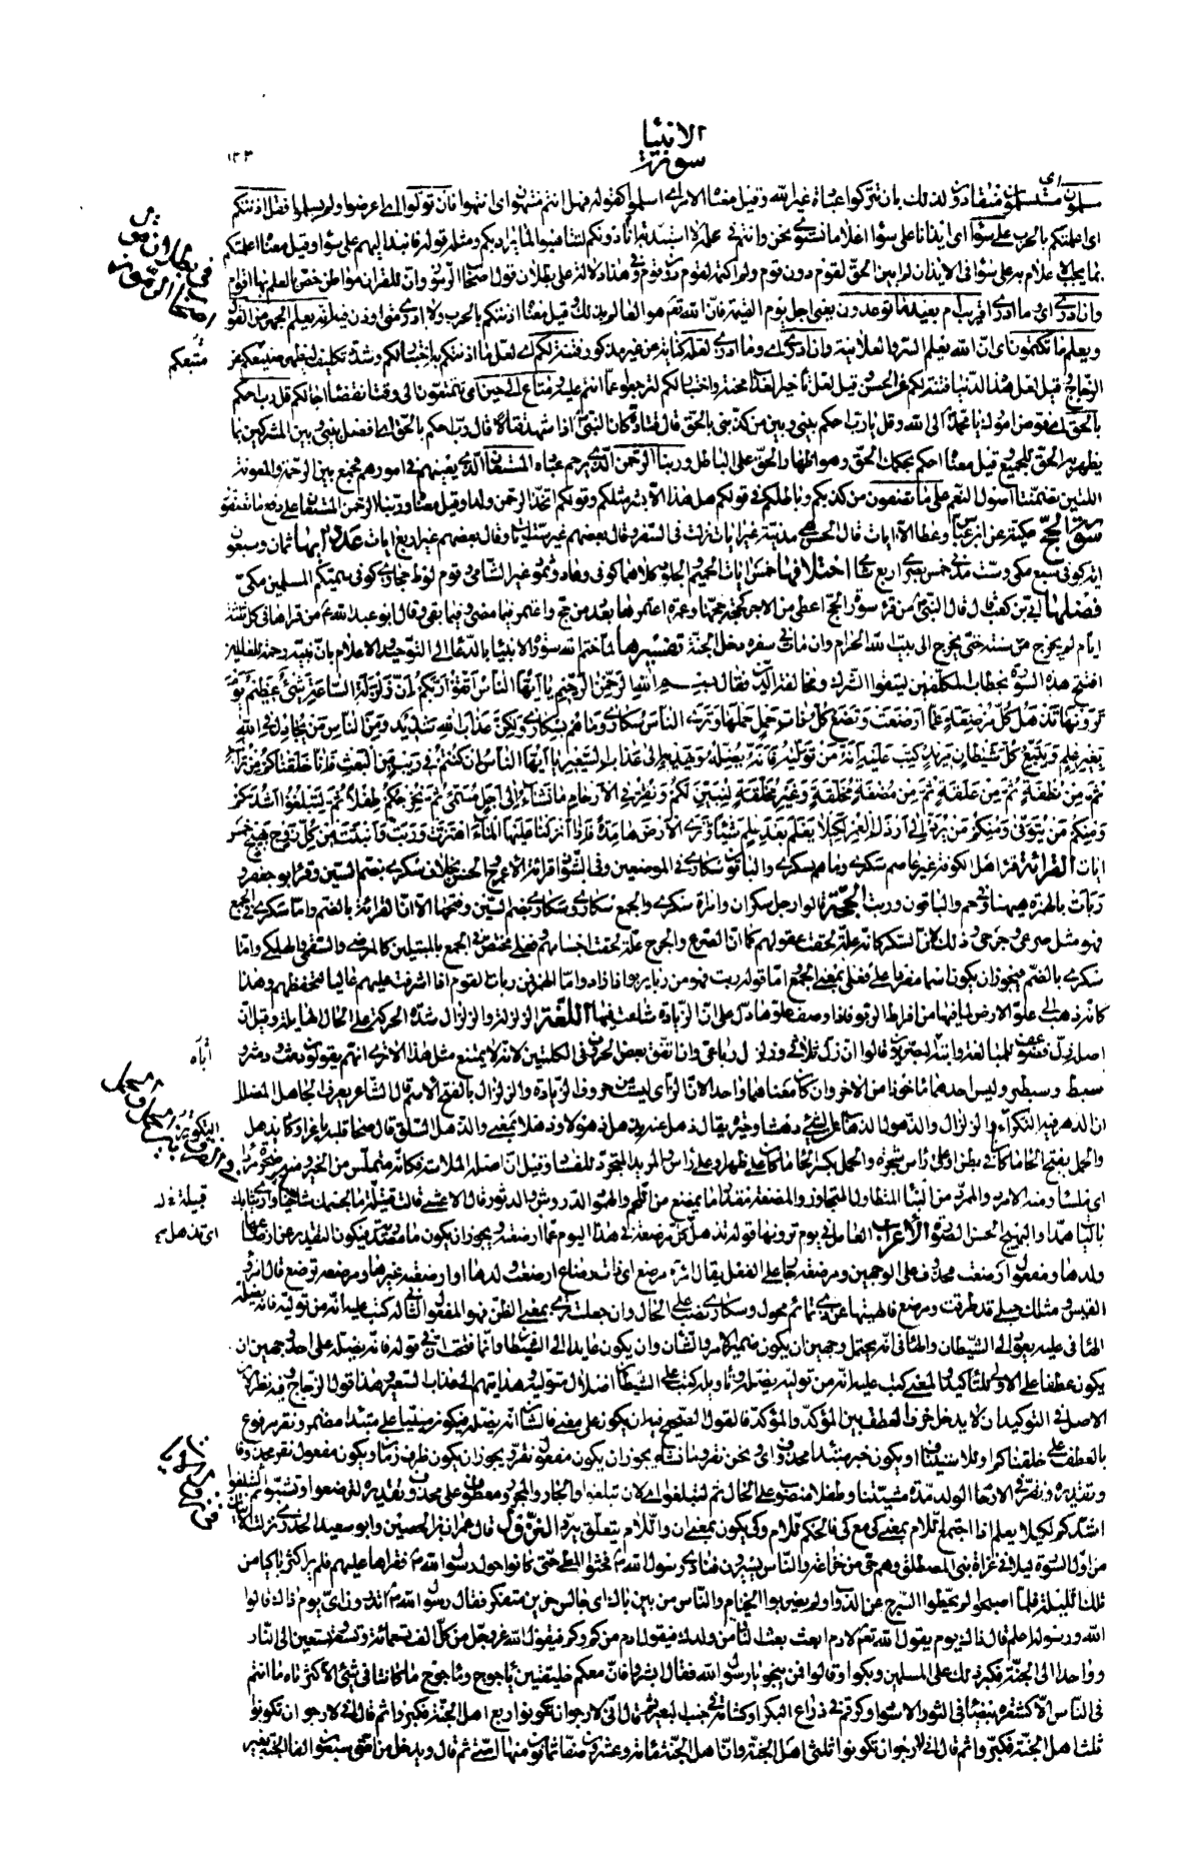 الانبيا
سورة
١٣٣
مسلمون اي مستسلمون منقادون لذلك بان تتركوا عبادة غير الله وقيل معناه الامر اي اسلموا كقوله فهل انتم منتهون اي انتهوا فان تولوا اي اعرضوا ولم يسلموا فقل اذنتكم
اي اعلمتكم بالحرب على سواء اي ايذانا على سواء اعلاما نستوي نحن وانتم في علمه لا استبد به انا دونكم لتتاهبوا لما يراد بكم ومثله قوله فانبذ اليهم على سواء وقيل معناه اعلمتكم
بما يجب الاعلام به على سواء في الايذان لم ابين الحق لقوم دون قوم ولم اكتمه لقوم دون قوم وفي هذا دلالة على بطلان قول اصحاب الرموز وان للقران بواطن خص بالعلم بها اقوام
وان ادري اي وما ادري اقريب ام بعيد ما توعدون يعني اجل يوم القيمة فان الله تعالى هو العالم بذلك وقيل معناه اذنتكم بالحرب ولا ادري متى اوذن فيه انه يعلم الجهر من القول
ويعلم ما تكتمون اي ان الله يعلم السر والعلانية وان ادري اي وما ادري لعله كناية عن غير مذكور فتنة لكم اي لعل ما اذنتكم به اختبار لكم وشدة تكليف ليظهر صنيعكم عن
الزجاج وقيل لعل هذه الدنيا فتنة لكم عن الحسن وقيل لعل تاخير العذاب محنة واختبار لكم لترجعوا عما انتم عليه ومتاع الى حين اي تتمتعون به الى وقت انقضاء اجالكم قل رب احكم
بالحق اي فوض امورك يا محمد الى الله وقل يا رب احكم بيني وبين من كذبني بالحق قال قتادة كان النبي اذا شهد قتالا قال رب احكم بالحق اي افصل بيني وبين المشركين بما
يظهر به الحق للجميع وقيل معناه احكم بحكمك الحق وهو اظهار الحق على الباطل وربنا الرحمن الذي يرحم عباده المستعان الذي يعينهم في امورهم فجمع بين الرحمة والمعونة
اللتين تضمنتا اصول النعم على ما تصفون من كذبكم وباطلكم في قولكم هل هذا الا بشر مثلكم وقولكم اتخذ الرحمن ولدا وقيل معناه وربنا الرحمن المستعان على دفع ما تصفون
سورة الحج مكية عن ابن عباس وعطا الا ايات قال الحسن هي مدنية غير ايات نزلت في السفر وقال بعضهم غير ست ايات وقال بعضهم غير اربع ايات عدد ايها ثمان وسبعون
اية كوفي سبع مكي وست مدني خمس بصري اربع شامي اختلافها خمس ايات الحميم والجلود كلاهما كوفي وعاد وثمود غير الشامي وقوم لوط حجازي كوفي سميكم المسلمين مكي
فضلها ابي بن كعب قال قال النبي من قرء سورة الحج اعطي من الاجر كحجة حجها وعمرة اعتمرها بعدد من حج واعتمر فيما مضى وفيما بقي وقال ابو عبد الله ع من قراها في كل ثلثة
ايام لم يخرج من سنته حتى يخرج الى بيت الله الحرام وان مات في سفره دخل الجنة تفسيرها لما ختم الله سورة الانبيا بالدعا الى التوحيد والاعلام بان نبيه رحمة للعالمين
افتتح هذه السورة بخطاب المكلفين ليتقوا الشرك ومخالفة الدين فقال بسم الله الرحمن الرحيم يا ايها الناس اتقوا ربكم ان زلزلة الساعة شيء عظيم يوم
ترونها تذهل كل مرضعة عما ارضعت وتضع كل ذات حمل حملها وترى الناس سكارى وما هم بسكارى ولكن عذاب الله شديد ومن الناس من يجادل في الله
بغير علم ويتبع كل شيطان مريد كتب عليه انه من تولاه فانه يضله ويهديه الى عذاب السعير يا ايها الناس ان كنتم في ريب من البعث فانا خلقناكم من تراب
ثم من نطفة ثم من علقة ثم من مضغة مخلقة وغير مخلقة لنبين لكم ونقر في الارحام ما نشاء الى اجل مسمى ثم نخرجكم طفلا ثم لتبلغوا اشدكم
ومنكم من يتوفى ومنكم من يرد الى ارذل العمر لكيلا يعلم بعد علم شيئا وترى الارض هامدة فاذا انزلنا عليها الماء اهتزت وربت وانبتت من كل زوج بهيج خمس
ايات القرائة قرا اهل الكوفة غير عاصم سكرى وما هم بسكرى والباقون سكارى في الموضعين وفي الشواذ قرائة الاعرج والحسن بخلاف سكرى بضم السين وقرا ابو جعفر و
ربات بالهمزة ههنا وفي حم والباقون وربت الحجة قالوا رجل سكران وامراة سكرى والجمع سكارى وسكارى بضم السين وفتحها الا ان القرائة بالضم واما سكرى في الجمع
فهو مثل صرعى وجرحى وذلك لان السكر كانه علة لحقت عقولهم كما ان الصرع والجرح علة لحقت اجسامهم وفعلى مختص في الجمع بالمبتلين كالمرضى والسقمى والهلكى واما
سكرى بالضم فيجوز ان يكون اسما مفردا على فعلى بمعنى الجمع اما قوله ربت فهو من ربا يربوا اذا زاد واما الهمز فمن ربات القوم اذا اشرفت عليهم عاليا لتحفظهم وهذا
كانه ذهب الى علو الارض لما فيها من افراط الربو فاذا وصف علوها دل على ان الزيادة شاعت فيها اللغة الزلزلة والزلزال شدة الحركة على الحال الهائلة وقيل ان
اصله زل فضوعف للمبالغة واثبته البصريون قالوا ان زل ثلاثي وزلزل رباعي وان اتفق بعض الحروف في الكلمتين لانه لا يمتنع مثل هذا الا ترى انهم يقولون دمث ودمثر و
سبط وسبطر وليس احدهما ماخوذا من الاخر وان كان معناهما واحدا لان الراء ليست من حروف الزيادة والزلزال بالفتح الاسم قال الشاعر يعرف الجاهل المضلل
ان الدهر فيه النكراء والزلزال والذهول الذهاب عن الشيء دهشا وحيرة يقال ذهل عنه يذهل ذهولا وذهلا بمعنى والذهل السلو قال صحا قلبه يا عز او كاد يذهل
والحمل بفتح الحاء ما كان في بطن او على راس شجرة والحمل بكسر الحاء ما كان على ظهر او على راس والمريد المتجرد للفساد وقيل ان اصله الملاسة فكانه متملس من الخير ومنه صخرة مرداء
اي ملساء ومنه الامرد والممرد من البناء المتطاول المتجاوز والمضغة مقدار ما يمضغ من اللحم والهمود الدروس والدثور قال الاعشى قالت قتيلة ما لجسمك شاحبا وارى ثيابك
باليات همدا والبهيج الحسن الصورة الاعراب العامل في يوم ترونها قوله تذهل كل مرضعة في هذا اليوم عما ارضعته ويجوز ان يكون ما مصدرية فيكون التقدير عن ارضاعها
ولدها ومفعول ارضعت محذوف على الوجهين ومرضعة جاء على الفعل يقال امراة مرضع اي ذات رضاع ارضعت ولدها او ارضعته غيرها ومرضعة ترضع قال امرؤ
القيس ومثلك حبلى قد طرقت ومرضع فالهيتها عن ذي تمائم محول وسكارى نصب على الحال وان جعلت ترى بمعنى الظن فهو المفعول الثاني كتب عليه انه من تولاه فانه يضله
الهاء في عليه يعود الى الشيطان والهاء في انه يحتمل وجهين ان يكون ضمير الامر والشان وان يكون عايدا الى الشيطان وانما فتحت ان في قوله فانه يضله على احد وجهين ان
يكون عطفا على الاولى للتاكيد والمعنى كتب عليه انه من تولاه يضله وتاويله كتب على الشيطان اضلال متوليه وهدايتهم الى عذاب السعير هذا قول الزجاج وفيه نظر لان
الاصل في التوكيد ان لا يدخل حرف العطف بين المؤكد والمؤكد فالقول الصحيح فيه ان يكون على معنى فالشان انه يضله فيكون مبنيا على مبتدا مضمر ونقر مرفوع
بالعطف على خلقناكم او للاستيناف او يكون خبر مبتدا محذوف اي ونحن نقر وما نشاء يجوز ان يكون مفعول نقر ويجوز ان يكون ظرف زمان ويكون مفعول نقر محذوفا
وتقديره ونقر في الارحام الولد مدة مشيتنا وطفلا منصوب على الحال ثم لتبلغوا اي لان تبلغوا والجار والمجرور معطوف على محذوف وتقديره لترضعوا وتشبوا ثم لتبلغوا
اشدكم لكيلا يعلم اذا اجتمع اللام بمعنى كي مع كي فالحكم للام وكي يكون بمعنى ان واللام يتعلق بيرد النزول قال عمران بن الحصين وابو سعيد الخدري نزلت الايتان
من اول السورة ليلا في غزاة بني المصطلق وهم حي من خزاعة والناس يسيرون فنادى رسول الله ص فحثوا المطي حتى كانوا حول رسول الله ص فقراها عليهم فلم ير اكثر باكيا من
تلك الليلة فلما اصبحوا لم يحطوا السرج عن الدواب ولم يضربوا الخيام والناس من بين باك اي جالس حزين متفكر فقال رسول الله ص اتدرون اي يوم ذاك قالوا
الله ورسوله اعلم قال ذاك يوم يقول الله تعالى لادم ابعث بعث النار من ولدك فيقول ادم من كم وكم فيقول الله عز وجل من كل الف تسعمائة وتسعة وتسعين الى النار
وواحدا الى الجنة فكبر ذلك على المسلمين وبكوا وقالوا فمن ينجو يا رسول الله فقال ابشروا فان معكم خليقتين ياجوج وماجوج ما كانتا في شيء الا كثرتاه ما انتم
في الناس الا كشعرة بيضاء في الثور الاسود او كرقم في ذراع البكر او كشامة في جنب البعير ثم قال اني لارجو ان تكونوا ربع اهل الجنة فكبروا ثم قال اني لارجو ان تكونوا
ثلث اهل الجنة فكبروا ثم قال اني لارجو ان تكونوا ثلثي اهل الجنة وان اهل الجنة مائة وعشرون صفا ثمانون منها امتي ثم قال ويدخل من امتي سبعون الفا الجنة بغير
في بطلان قول
اصحاب الرموز